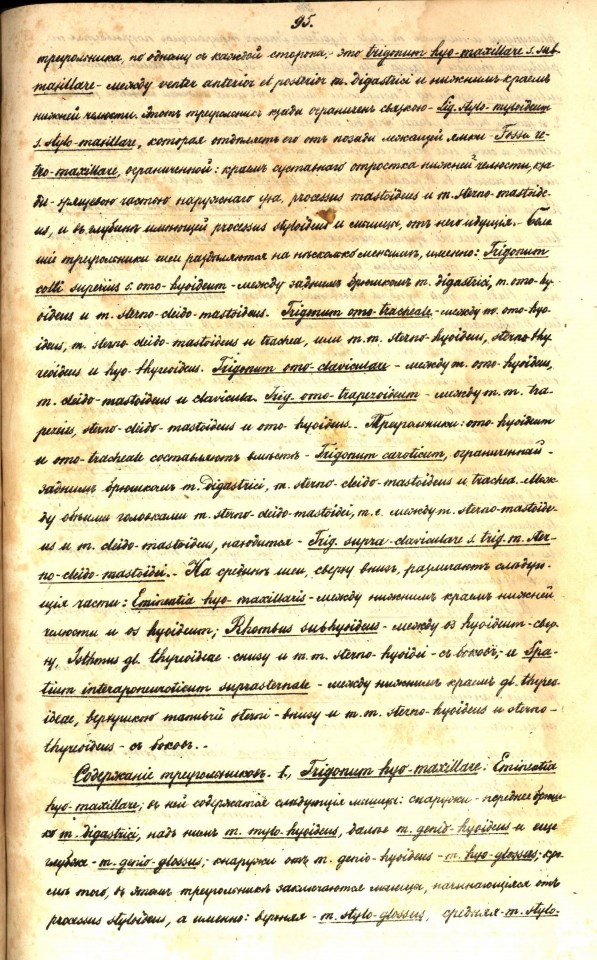 95.
треугольника, по одному съ каждой стороны, это trigonum hyo-maxillare s. sub-
maxillare - между venter anterior et posterior m. Digastrici и нижнимъ краемъ
нижней челюсти. Этотъ треугольникъ сзади ограниченъ связкою - Lig. stylo-myloideum
s. stylo-maxillare, которая отдѣляетъ его отъ позади лежащей ямки - Fossa re-
tro-maxillare, ограниченной: краемъ суставнаго отростка нижней челюсти, сза-
ди - хрящевою частью наружнаго уха, processus mastoideus и m. sterno-mastoide-
us, и въ глубинѣ имѣющей processus styloideus и мышцы, отъ него идущія. Боль-
шіе треугольники шеи раздѣляются на нѣсколько меньшихъ, именно: Trigonum
colli superius s. omo-hyoideum - между заднимъ брюшкомъ m. digastrici, m. omo-hy-
oideus и m. sterno-cleido-mastoideus. Trigonum omo-tracheale - между m. omo-hyo-
ideus, m. sterno cleido-mastoideus и trachea, или m.m. sterno-hyoideus, sterno-thy-
reoideus и hyo-thyreoideus. Trigonum omo-claviculare - между m. omo-hyoideus,
m. cleido-mastoideus и clavicula. Trig. omo-trapezoideum - между m.m. tra-
pezius, sterno-cleido-mastoideus и omo-hyoideus. - Треугольники: omo-hyoideum
и omo-tracheale составляютъ вмѣстѣ - Trigonum caroticum, ограниченный -
заднимъ брюшкомъ m. digastrici, m. sterno-cleido-mastoideus и trachea. Меж-
ду обѣими головками m. sterno-cleido-mastoidei, т.е. между m. sterno-mastoide-
us и m. cleido-mastoideus, находится - Trig. supra-claviculare s. trig. m. ster-
no-cleido-mastoidei. - На срединѣ шеи, сверху внизъ, различаютъ слѣдую-
щія части: Eminentia hyo-maxillaris - между нижнимъ краемъ нижней
челюсти и os hyoideum; Rhombus subhyoideus - между os hyoideum - свер-
ху, Isthmus gl. thyreoideae - снизу и m.m. sterno-hyoidei - съ боковъ; и Spa-
tium interaponeuroticum suprasternale - между нижнимъ краемъ gl. thyreo-
ideae, верхушкою manubrii sterni - внизу и m.m. sterno-hyoideus и sterno-
thyreoideus - съ боковъ. -
Содержаніе треугольниковъ. 1., Trigonum hyo-maxillare: Eminentia
hyo-maxillare; въ ней содержатся слѣдующія мышцы: снаружи - переднее брюш-
ко m. digastrici, надъ нимъ m. mylo-hyoideus, далѣе m. genio-hyoideus и еще
глубже - m. genio-glossus; кнаружи отъ m. genio-hyoideus - m. hyo-glossus; кро-
мѣ того, въ этомъ треугольникѣ заключаются мышцы, начинающіяся отъ
processus styloideus, а именно: верхняя - m. stylo-glossus, средняя - m. stylo-